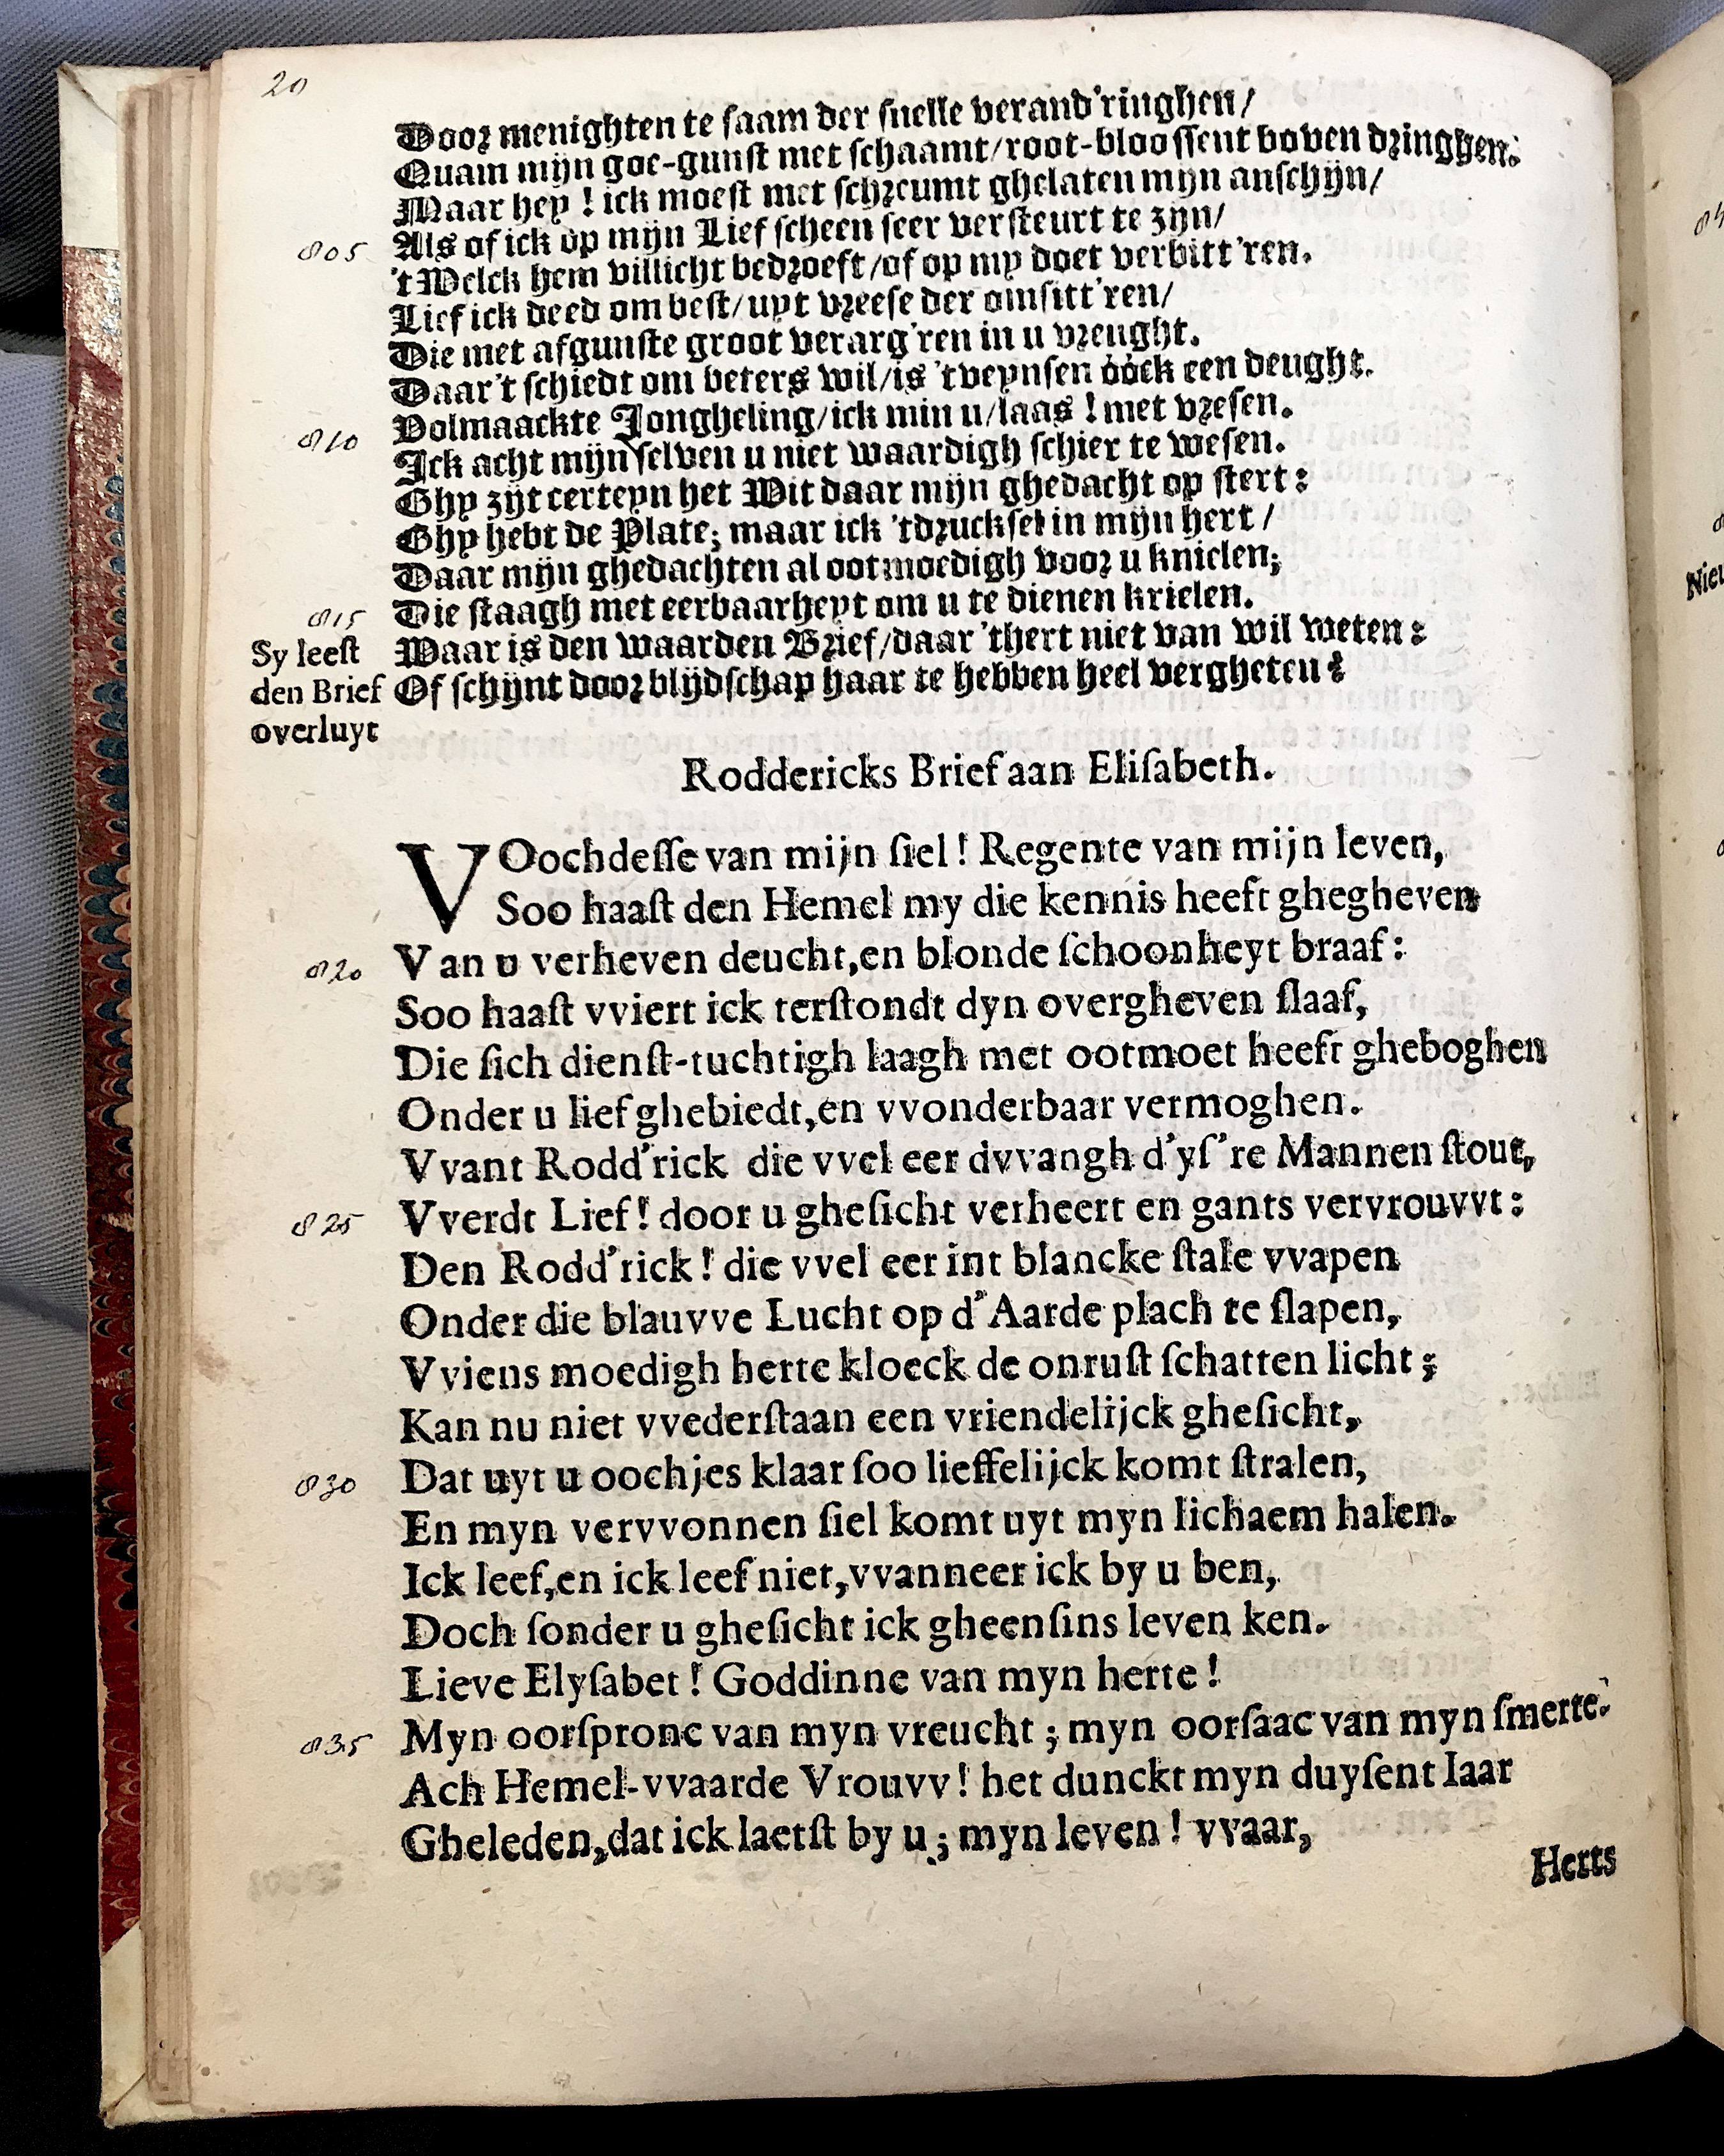 20
Door menighten te saam der snelle verand'ringhen/
Quam mijn goe-gunst met schaamt/root-bloossent boven dringhen.
Maar hey! ick moest met schreumt ghelaten mijn anschijn/
805 Als of ick op mijn Lief scheen seer versteurt te zijn/
't Welck hem villicht bedroeft/of op my doet verbitt'ren.
Lief ick deed om best/uyt vreese der omsitt'ren/
Die met afgunste groot verarg'ren in u vreught.
Daar't schiedt om beters wil/is 't veynsen óóck een deught.
Volmaackte Jongheling/ick min u/laas! met vresen.
810 Ick acht mijn selven u niet waardigh schier te wesen.
Ghy zijt certeyn het Wit daar mijn ghedacht op stert:
Ghy hebt de Plate; maar ick 'tdrucksel in mijn hert/
Daar mijn ghedachten al ootmoedigh voor u knielen;
815 Die staagh met eerbaarheyt om u te dienen krielen.
Sy leeft Waar is den waarden Brief/daar 'thert niet van wil weten:
den Brief Of schijnt door blijdschap haar te hebben heel vergheten?
overluyt
Roddericks Brief aan Eliſabeth.
VOochdeſſe van mijn ſiel! Regente van mijn leven,
Soo haaſt den Hemel my die kennis heeft ghegheven
820 Van u verheven deucht,en blonde ſchoonheyt braaf:
Soo haaſt vviert ick terſtondt dyn overgheven ſlaaf,
Die ſich dienſt-tuchtigh laagh met ootmoet heeft gheboghen
Onder u lief ghebiedt,en vvonderbaar vermoghen.
Vvant Rodd'rick die vvel eer dvvangh d'yſ're Mannen ſtout,
825 Vverdt Lief! door u gheſicht verheert en gants vervrouvvt:
Den Rodd'rick! die vvel eer int blancke ſtale vvapen
Onder die blauvve Lucht op d'Aarde plach te ſlapen,
Vviens moedigh herte kloeck de onruſt ſchatten licht;
Kan nu niet vvederſtaan een vriendelijck gheſicht,
830 Dat uyt u oochjes klaar ſoo lieffelijck komt ſtralen,
En myn vervvonnen ſiel komt uyt myn lichaem halen.
Ick leef,en ick leef niet,vvanneer ick by u ben,
Doch ſonder u gheſicht ick gheenſins leven ken.
Lieve Elyſabet! Goddinne van myn herte!
835 Myn oorſpronc van myn vreucht; myn oorſaac van myn ſmerte.
Ach Hemel-vvaarde Vrouvv! het dunckt myn duyſent Iaar
Gheleden,dat ick laetſt by u; myn leven! vvaar,
Herts